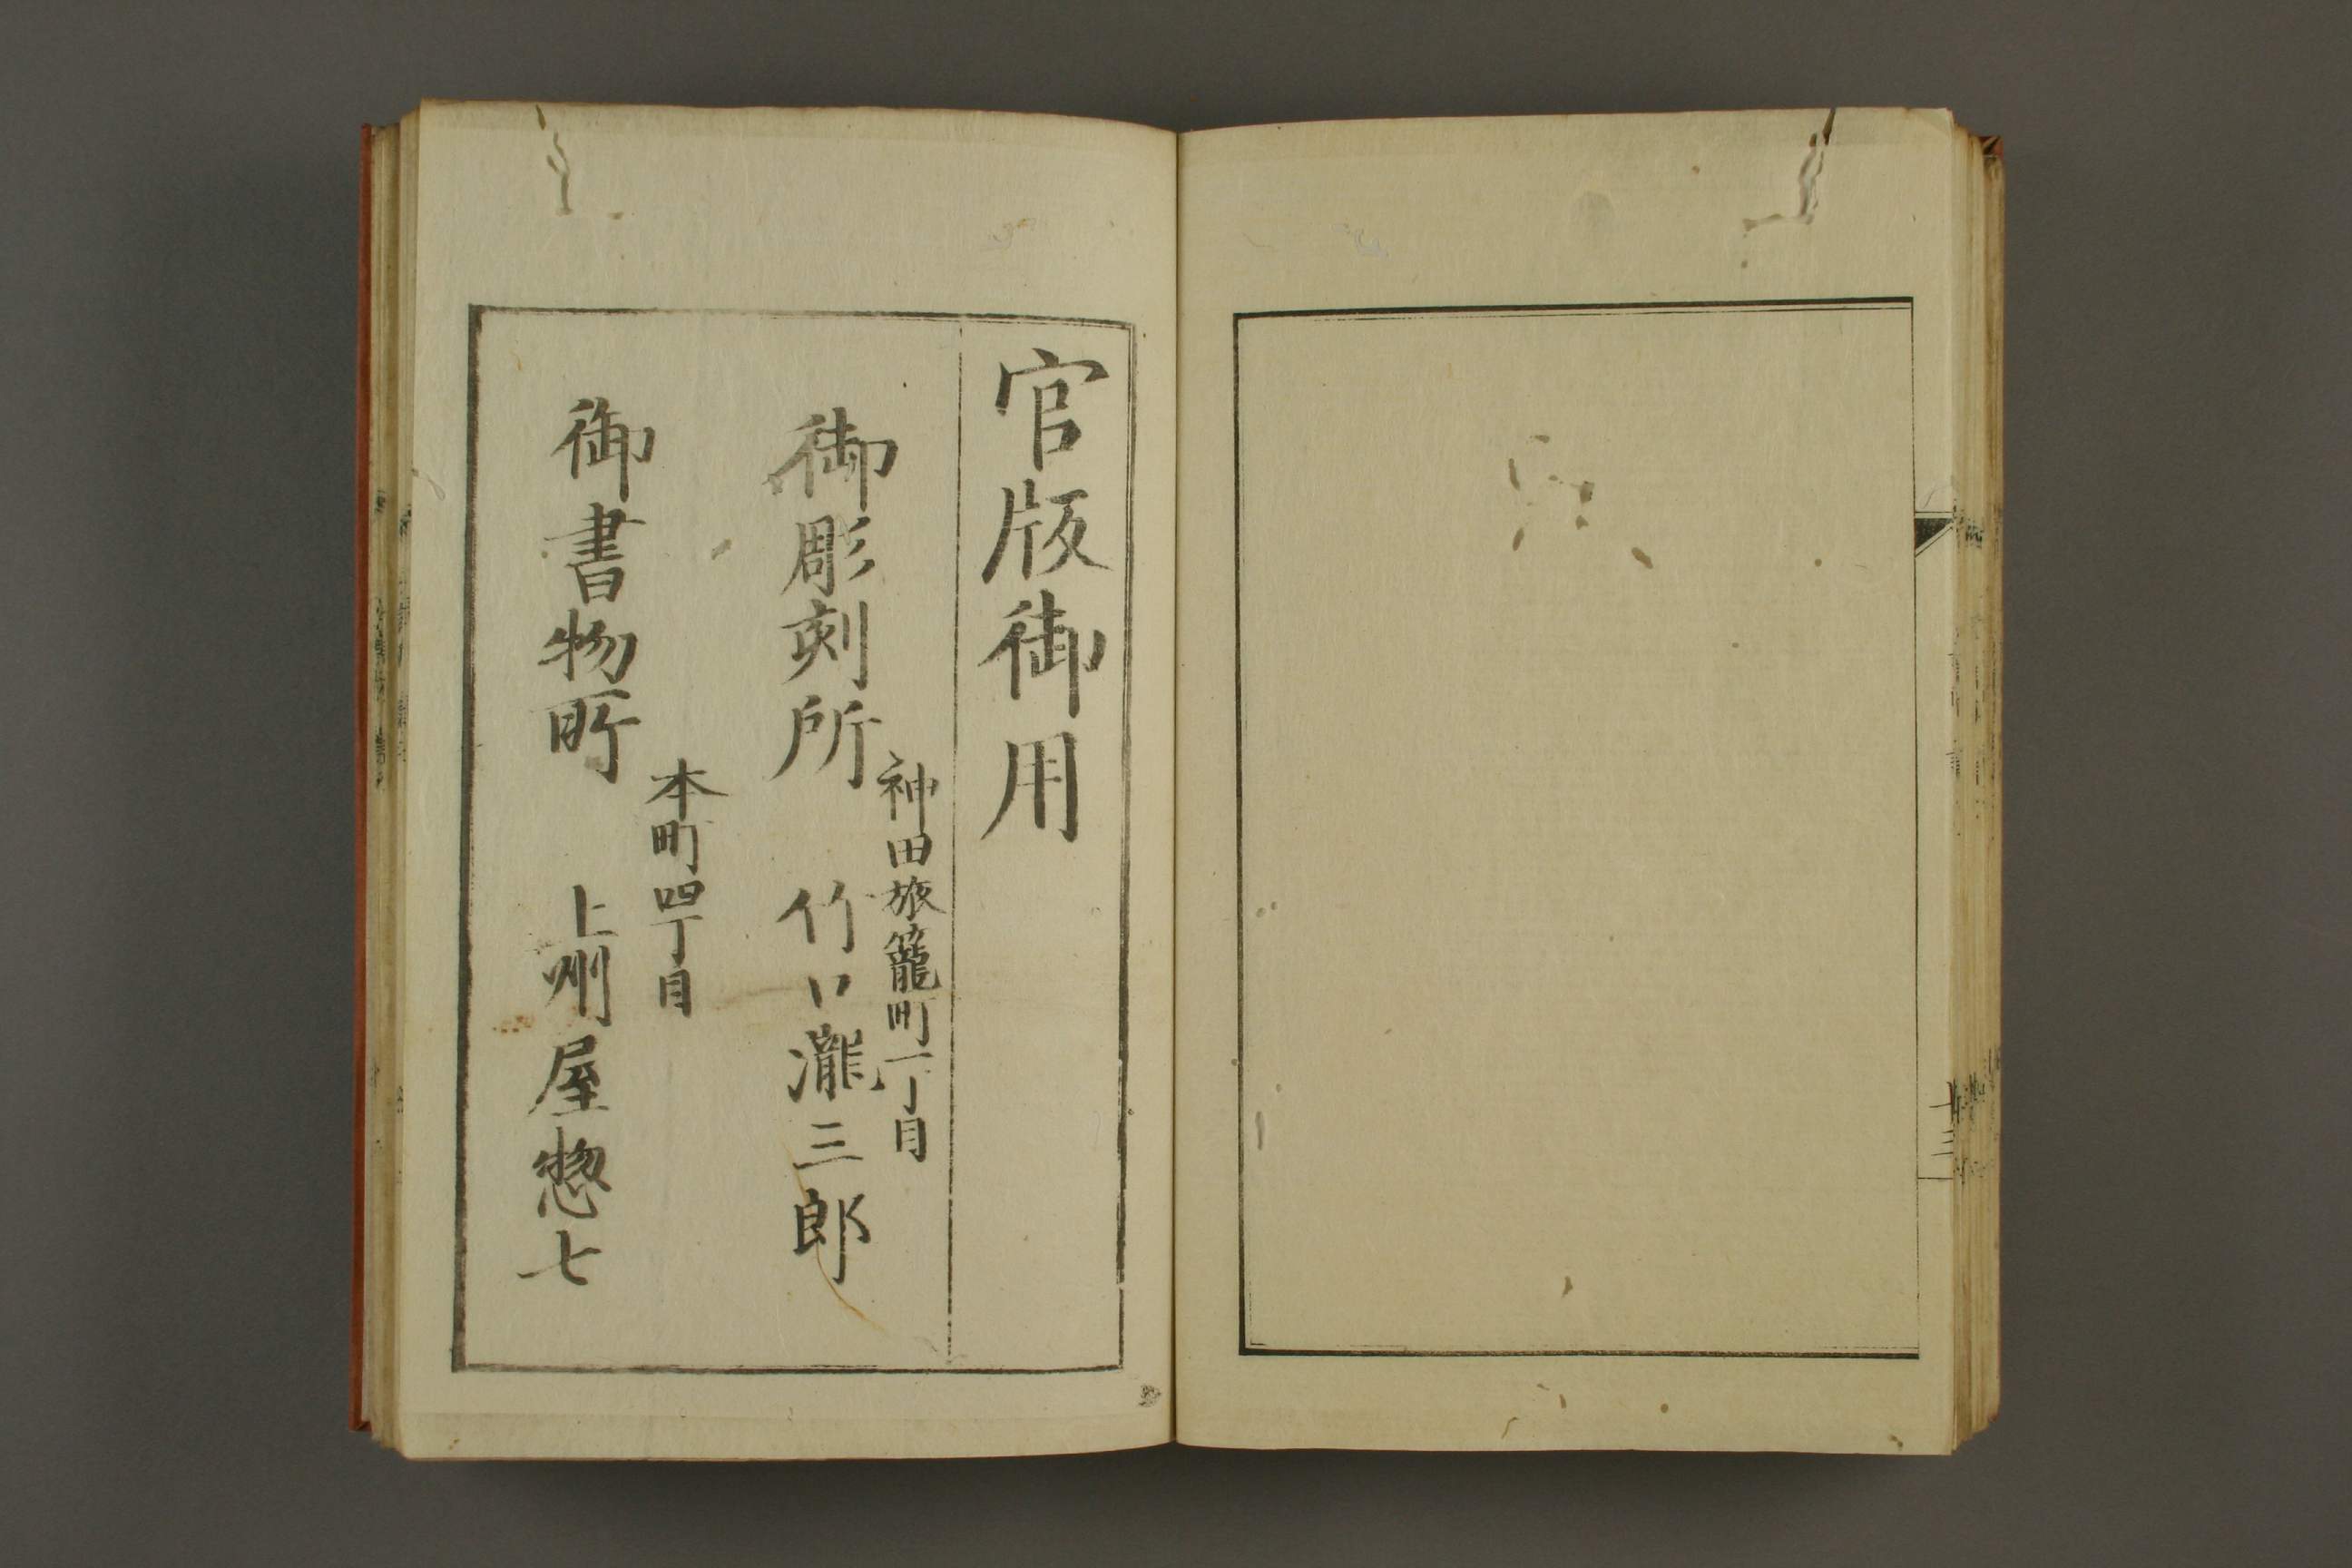 官版御用
御彫刻所
神田旅籠町一丁目
竹口瀧三郎
御書物所
本町四丁目
上州屋惣七